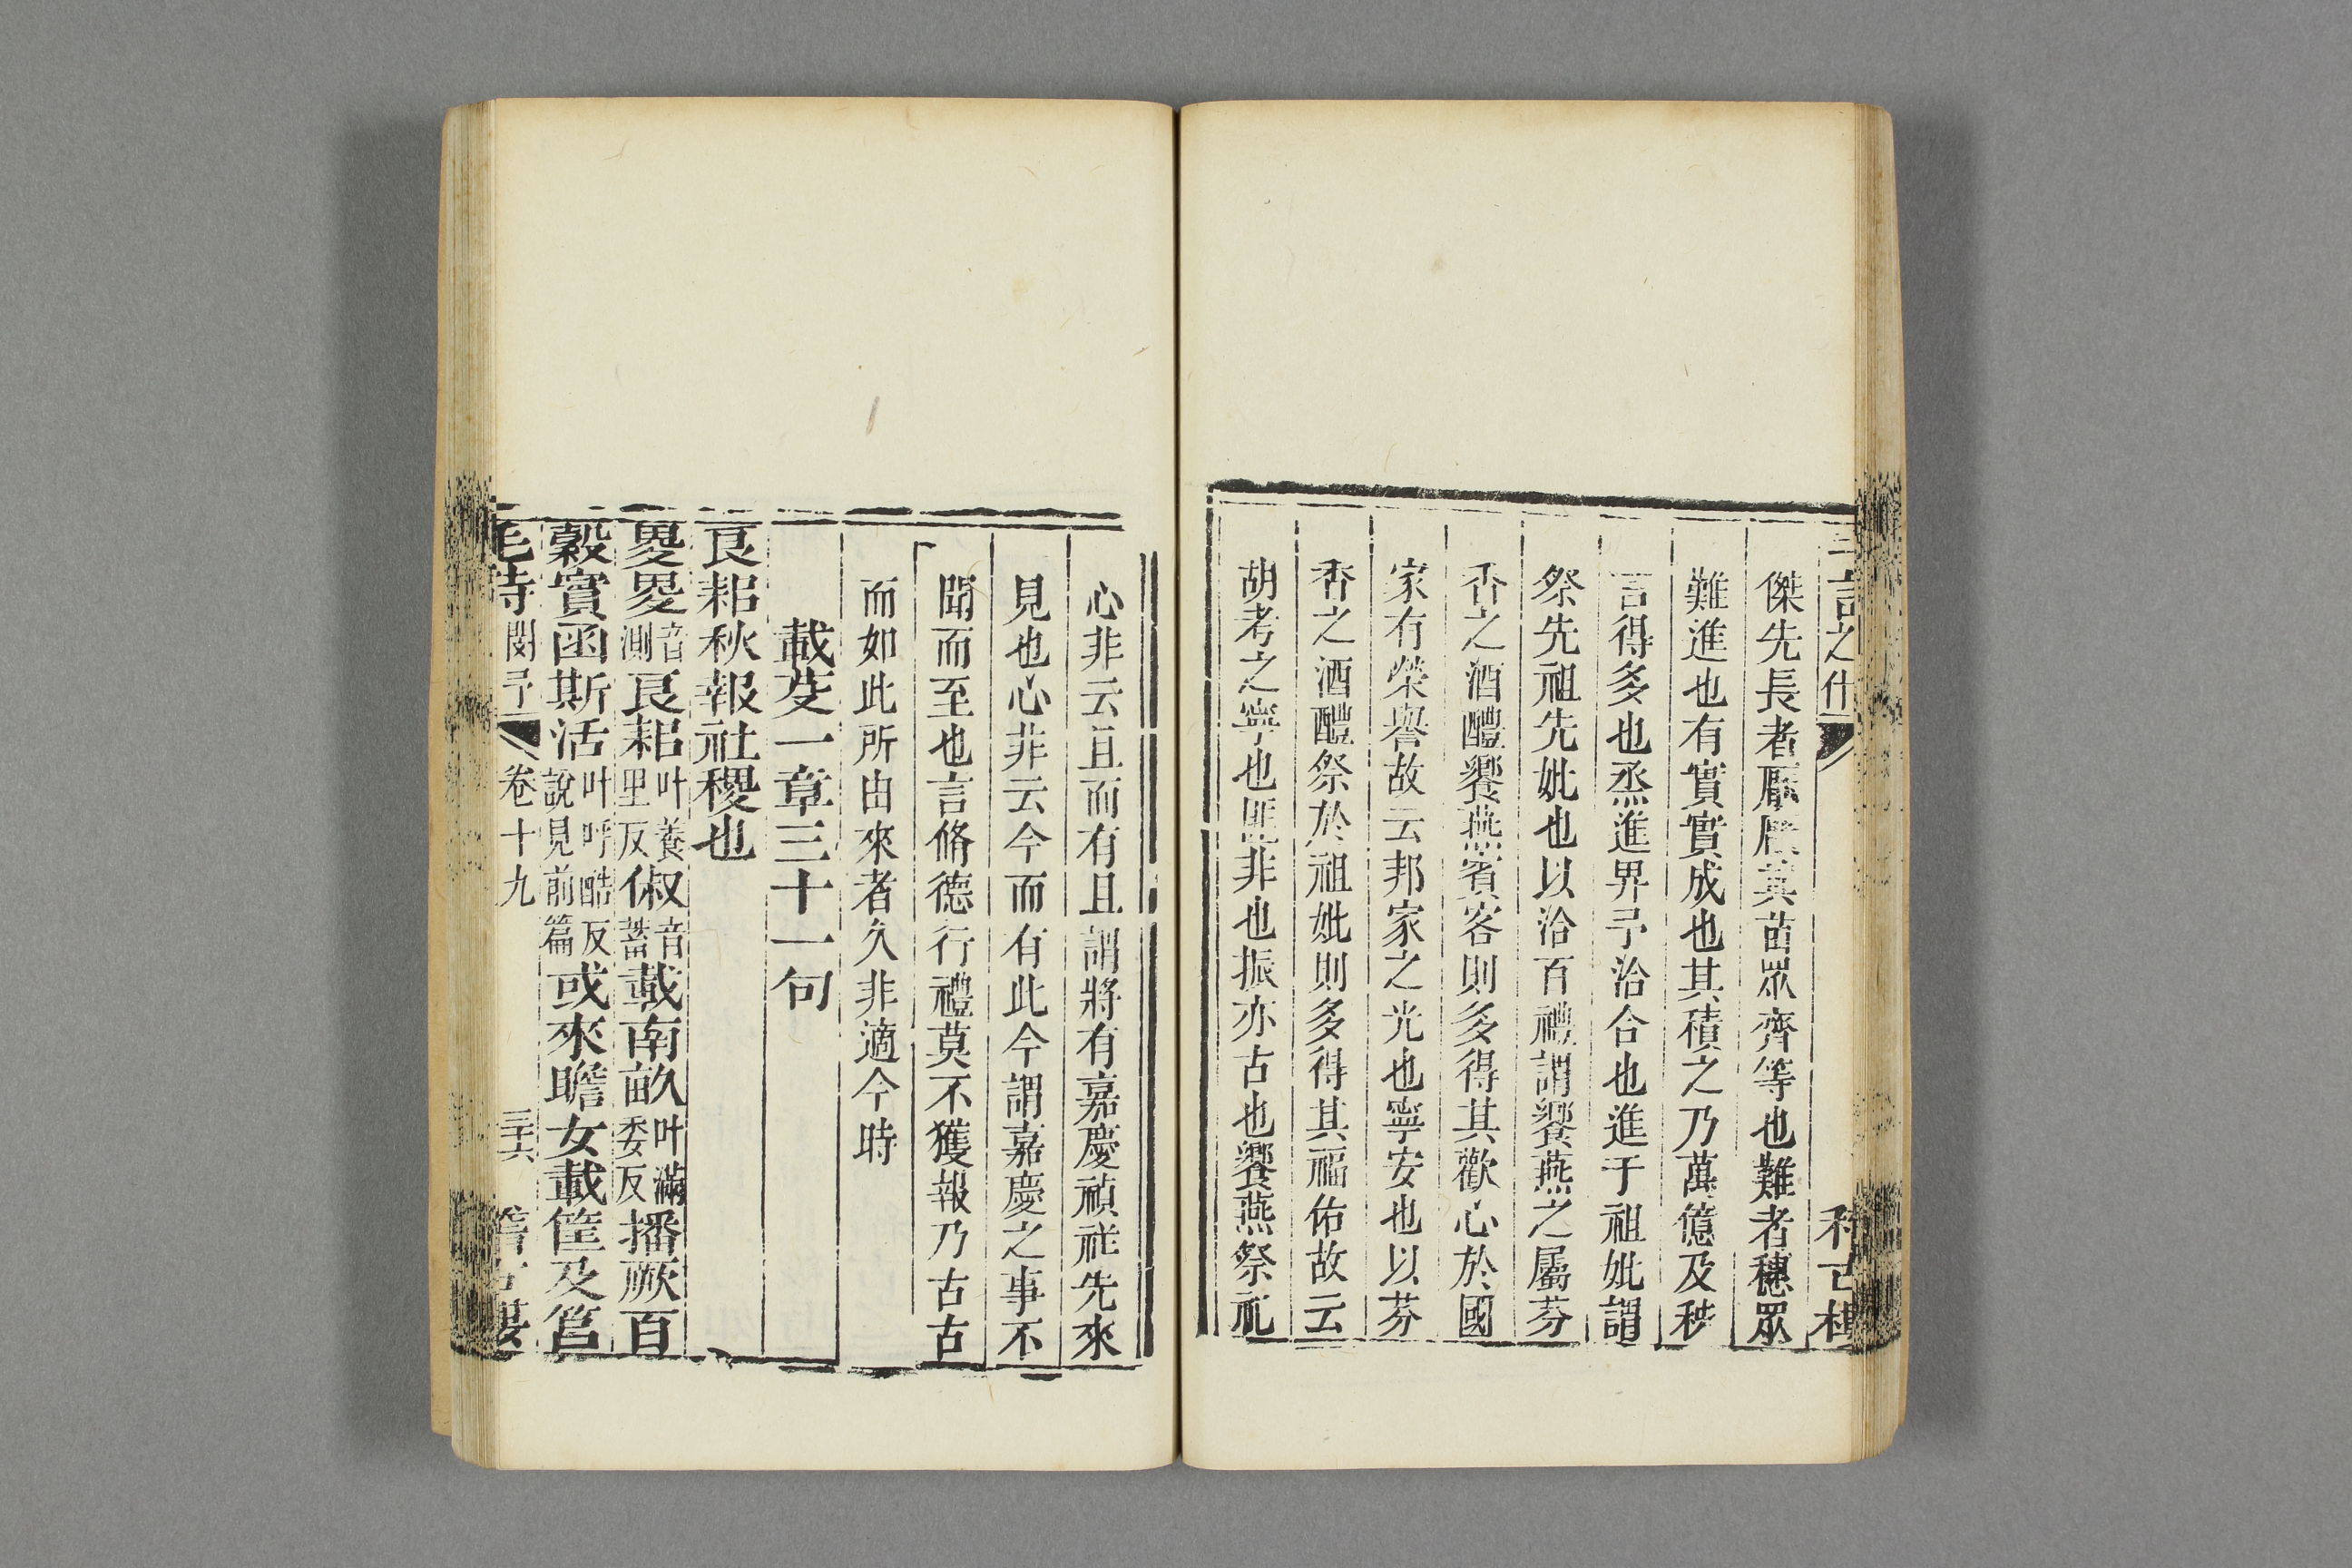 之什
傑先長者厭厭其苗眾齊等也難者穗眾
難進也有實實成也其積之乃萬億及秭
言得多也烝進畀予洽合也進于祖妣謂
祭先祖先妣也以洽百禮謂饗燕之屬芬
香之酒醴饗燕賓客則多得其歡心於國
家有榮譽故云邦家之光也寧安也以芬
香之酒醴祭於祖妣則多得其福佑故云
胡考之寧也匪非也振亦古也饗燕祭祀
心非云且而有且謂將有嘉慶禎祥先來
見也心非云今而有此今謂嘉慶之事不
聞而至也言脩德行禮莫不獲報乃古古
而如此所由來者久非適今時
載芟一章三十一句
良耜秋報社稷也
畟畟音測良耜叶養里反俶音菑載南畝叶滿委反播厥百
穀實函斯活叶呼酷反說見前篇或來瞻女載筐及筥
毛詩 閔予 卷十九 三十六